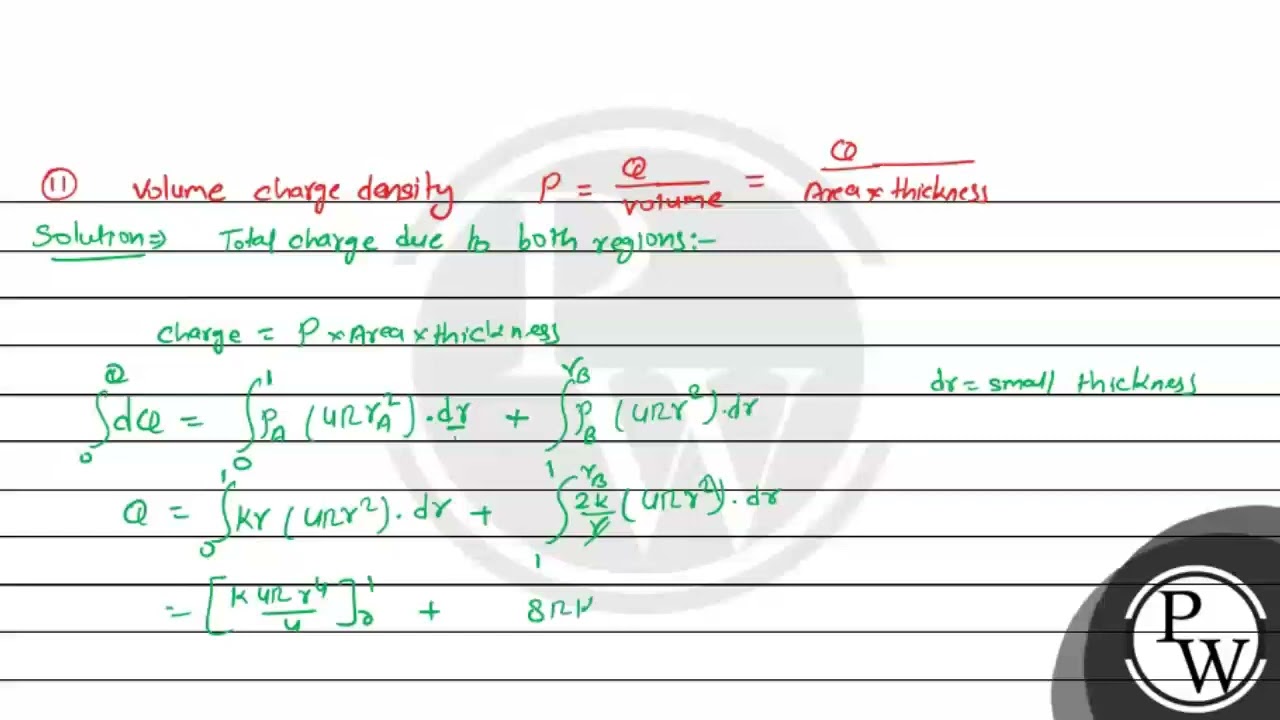 ⑪ Volume charge density ρ = Q/volume = Q/Area × thickness
Solution ⇒ Total charge due to both regions:-
charge = ρ × Area × thickness
∫₀^Q dQ = ∫₀^1 ρ_A (4πr_A²).dr + ∫₁^{r_B} ρ_B (4πr²).dr
dr = small thickness
Q = ∫₀^1 kr (4πr²).dr + ∫₁^{r_B} 2k/r (4πr²).dr
= [k4πr⁴/4]₀^1 + 8πk
PW
PW